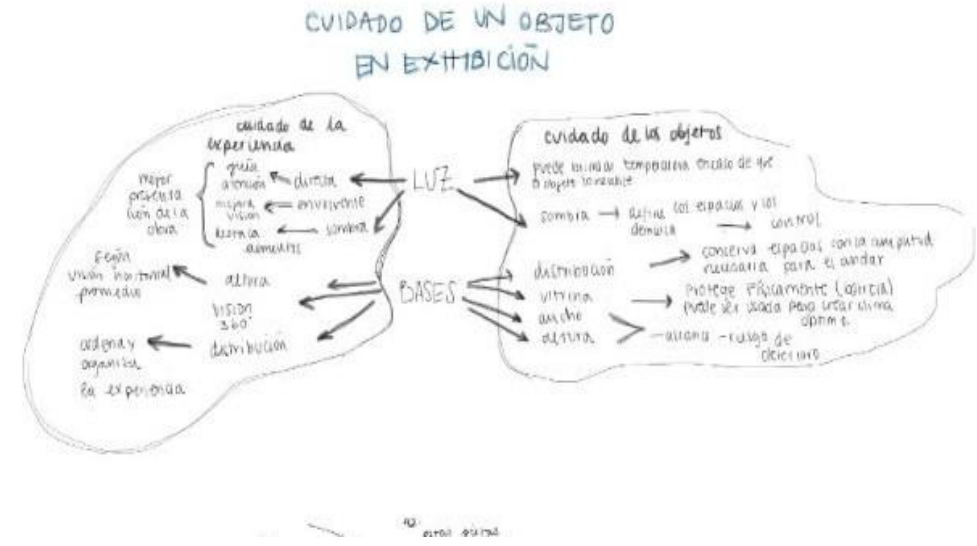 CUIDADO DE UN OBJETO
EN EXHIBICIÓN
cuidado de la
experiencia
guía
atención
directa
mejora
visión
envolvente
destaca
elementos
sombra
mejor
presenta
ción de la
obra
LUZ
según
visión horizontal
promedio
altura
visión
360°
ordena y
organiza
la experiencia
distribución
BASES
cuidado de los objetos
puede brindar temperatura en caso de que
el objeto lo necesite
sombra
define los espacios y los
control
distribución
conserva espacios con la amplitud
necesaria para el andar
vitrina
Protege físicamente
puede ser usada para crear clima
óptimo
ancho
altura
- riesgo de
deterioro